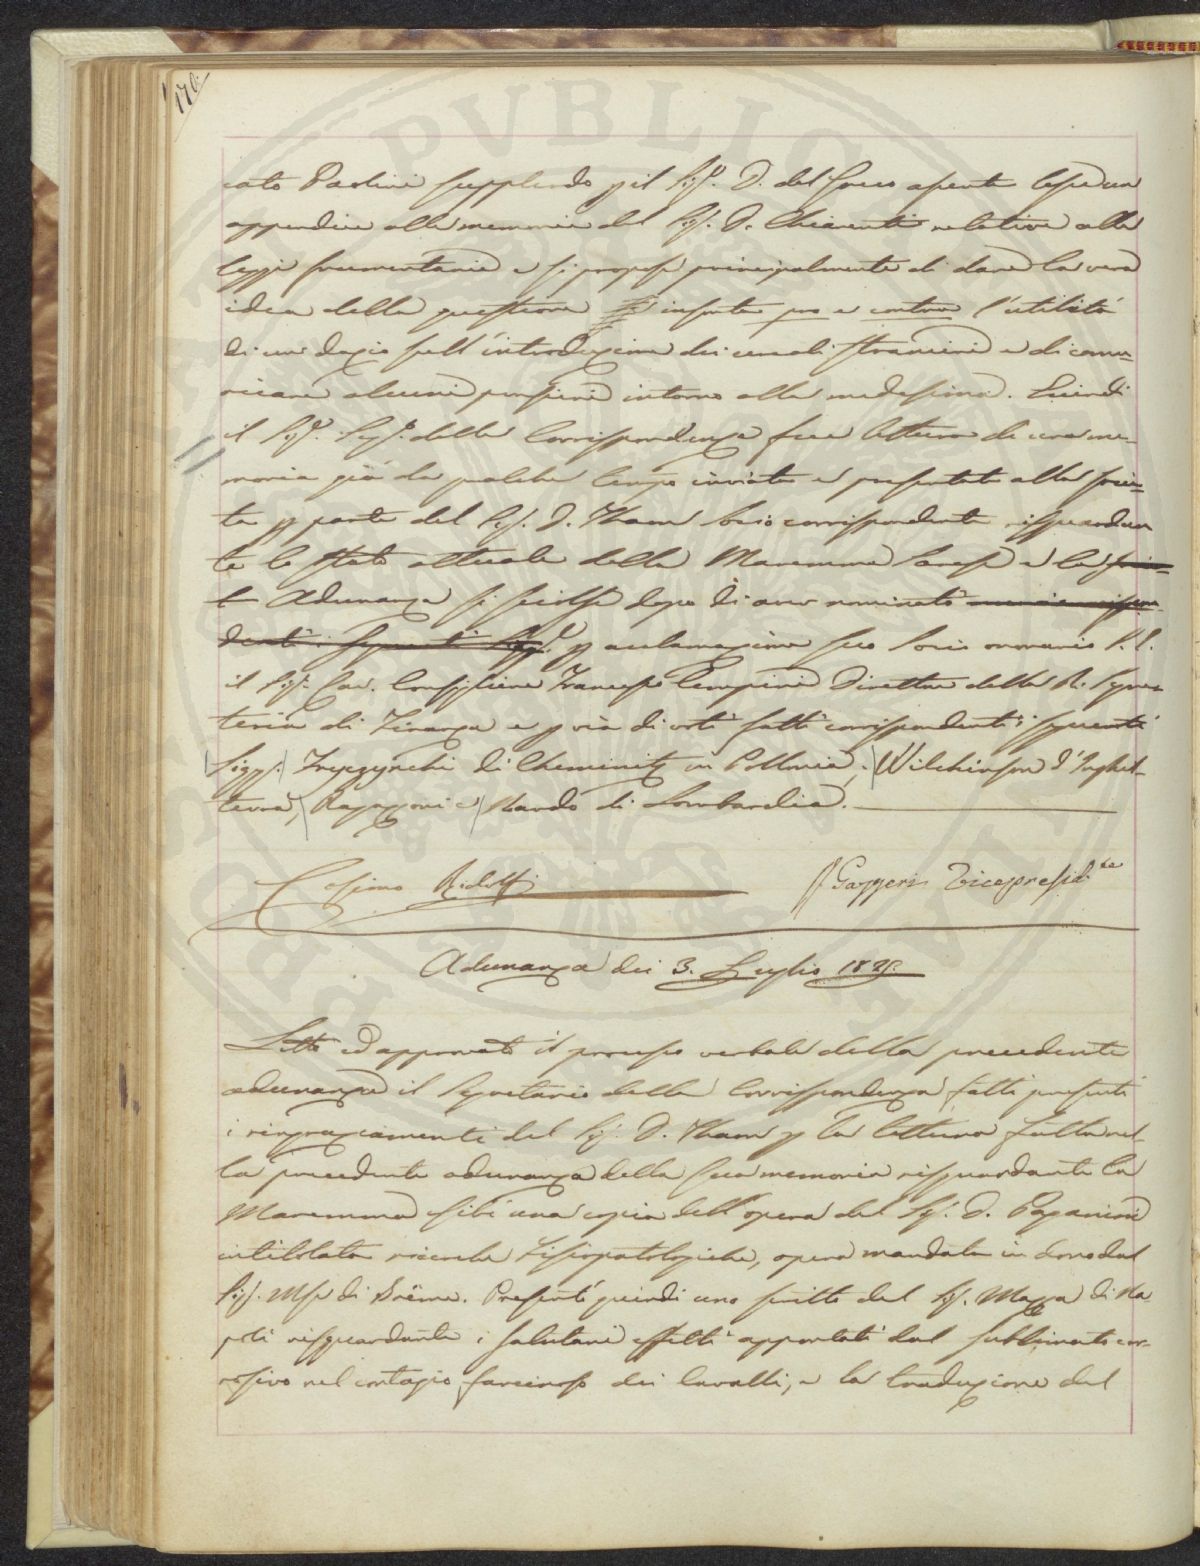 170.
cato Paolini supplendo p il Sigr. D. del Greco assente lesse un
appendice alla memoria del Sig. D. Chiarenti relativa alle
leggi frumentarie e si propose principalmente di dare la vera
idea della questione insorta pro e contro l'utilità
di un dazio sull'introduzione dei cereali stranieri e di comu-
nicare alcuni pensieri intorno alla medesima. Quindi
il Sigr. Segr. della Corrispondenza fece lettura di una me-
moria già da qualche tempo inviata e presentata alla Socie-
tà p parte del Sig. D. Thaon Socio corrispondente risguardan
te lo stato attuale della Maremma Sanese e la
Adunanza si sciolse dopo di aver nominato
p acclamazione suo Socio onorario S. E.
il Sig. Cav. Consigliere Francesco Cempini Direttore della R. Segre-
teria di Finanza e p via di voti fatti corrispondenti i seguenti
Sigg. di Cheminitz in Pollonia, Wilchinson d'Inghil-
terra, Ragazzoni e Nardo di Lombardia.
Cosimo Ridolfi G Gazzeri Vicepresid.te
Adunanza dei 3. Luglio 1825.
Letto ed approvato il processo verbale della precedente
adunanza il Segretario della Corrispondenza fatti presenti
i ringraziamenti del Sig. D. Thaon p la lettura fatta nel-
la precedente adunanza della sua memoria risguardante la
Maremma esibì una copia dell'opera del Sig. D. Paganini
intitolata ricerche Fisiopatologiche, opera mandata in dono dal
Sig. Mse di Brême. Presentò quindi uno scritto del Sig. Mazza di Na
poli risguardante i salutari effetti apportati dal sublimato cor-
rosivo nel contagio farcinoso dei Cavalli, e la traduzione del